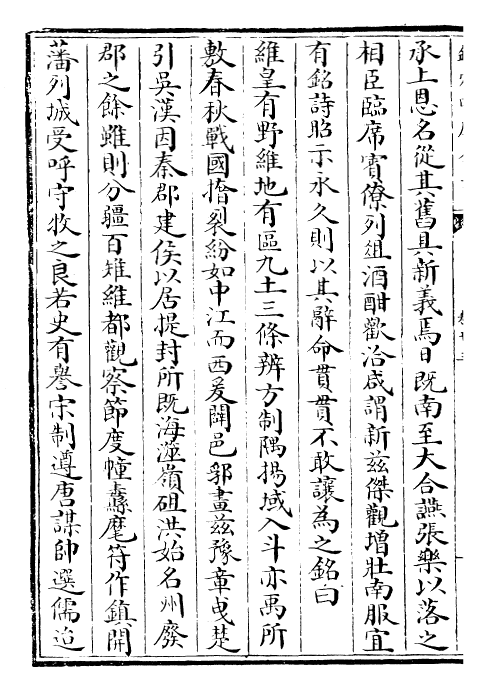 承上恩名從其舊具新義焉日既南至大合讌張樂以落之
相臣臨席賓僚列俎酒酣歡洽咸謂新兹傑觀增壯南服宜
有銘詩昭示永久則以其辭命貫貫不敢讓為之銘曰
維皇有野維地有區九土三條辨方制隅揚域入斗亦禹所
敷春秋戰國擔裂紛如中江而西爰闢邑郛畫兹豫章曵楚
引吳漢因秦郡建侯以居提封所既海澨嶺砠洪始名州廢
郡之餘雖則分疆百雉維都觀察節度幢纛麾符作鎮開
藩列城受呼守牧之良若史有譽宋制遵唐謀帥選儒迨